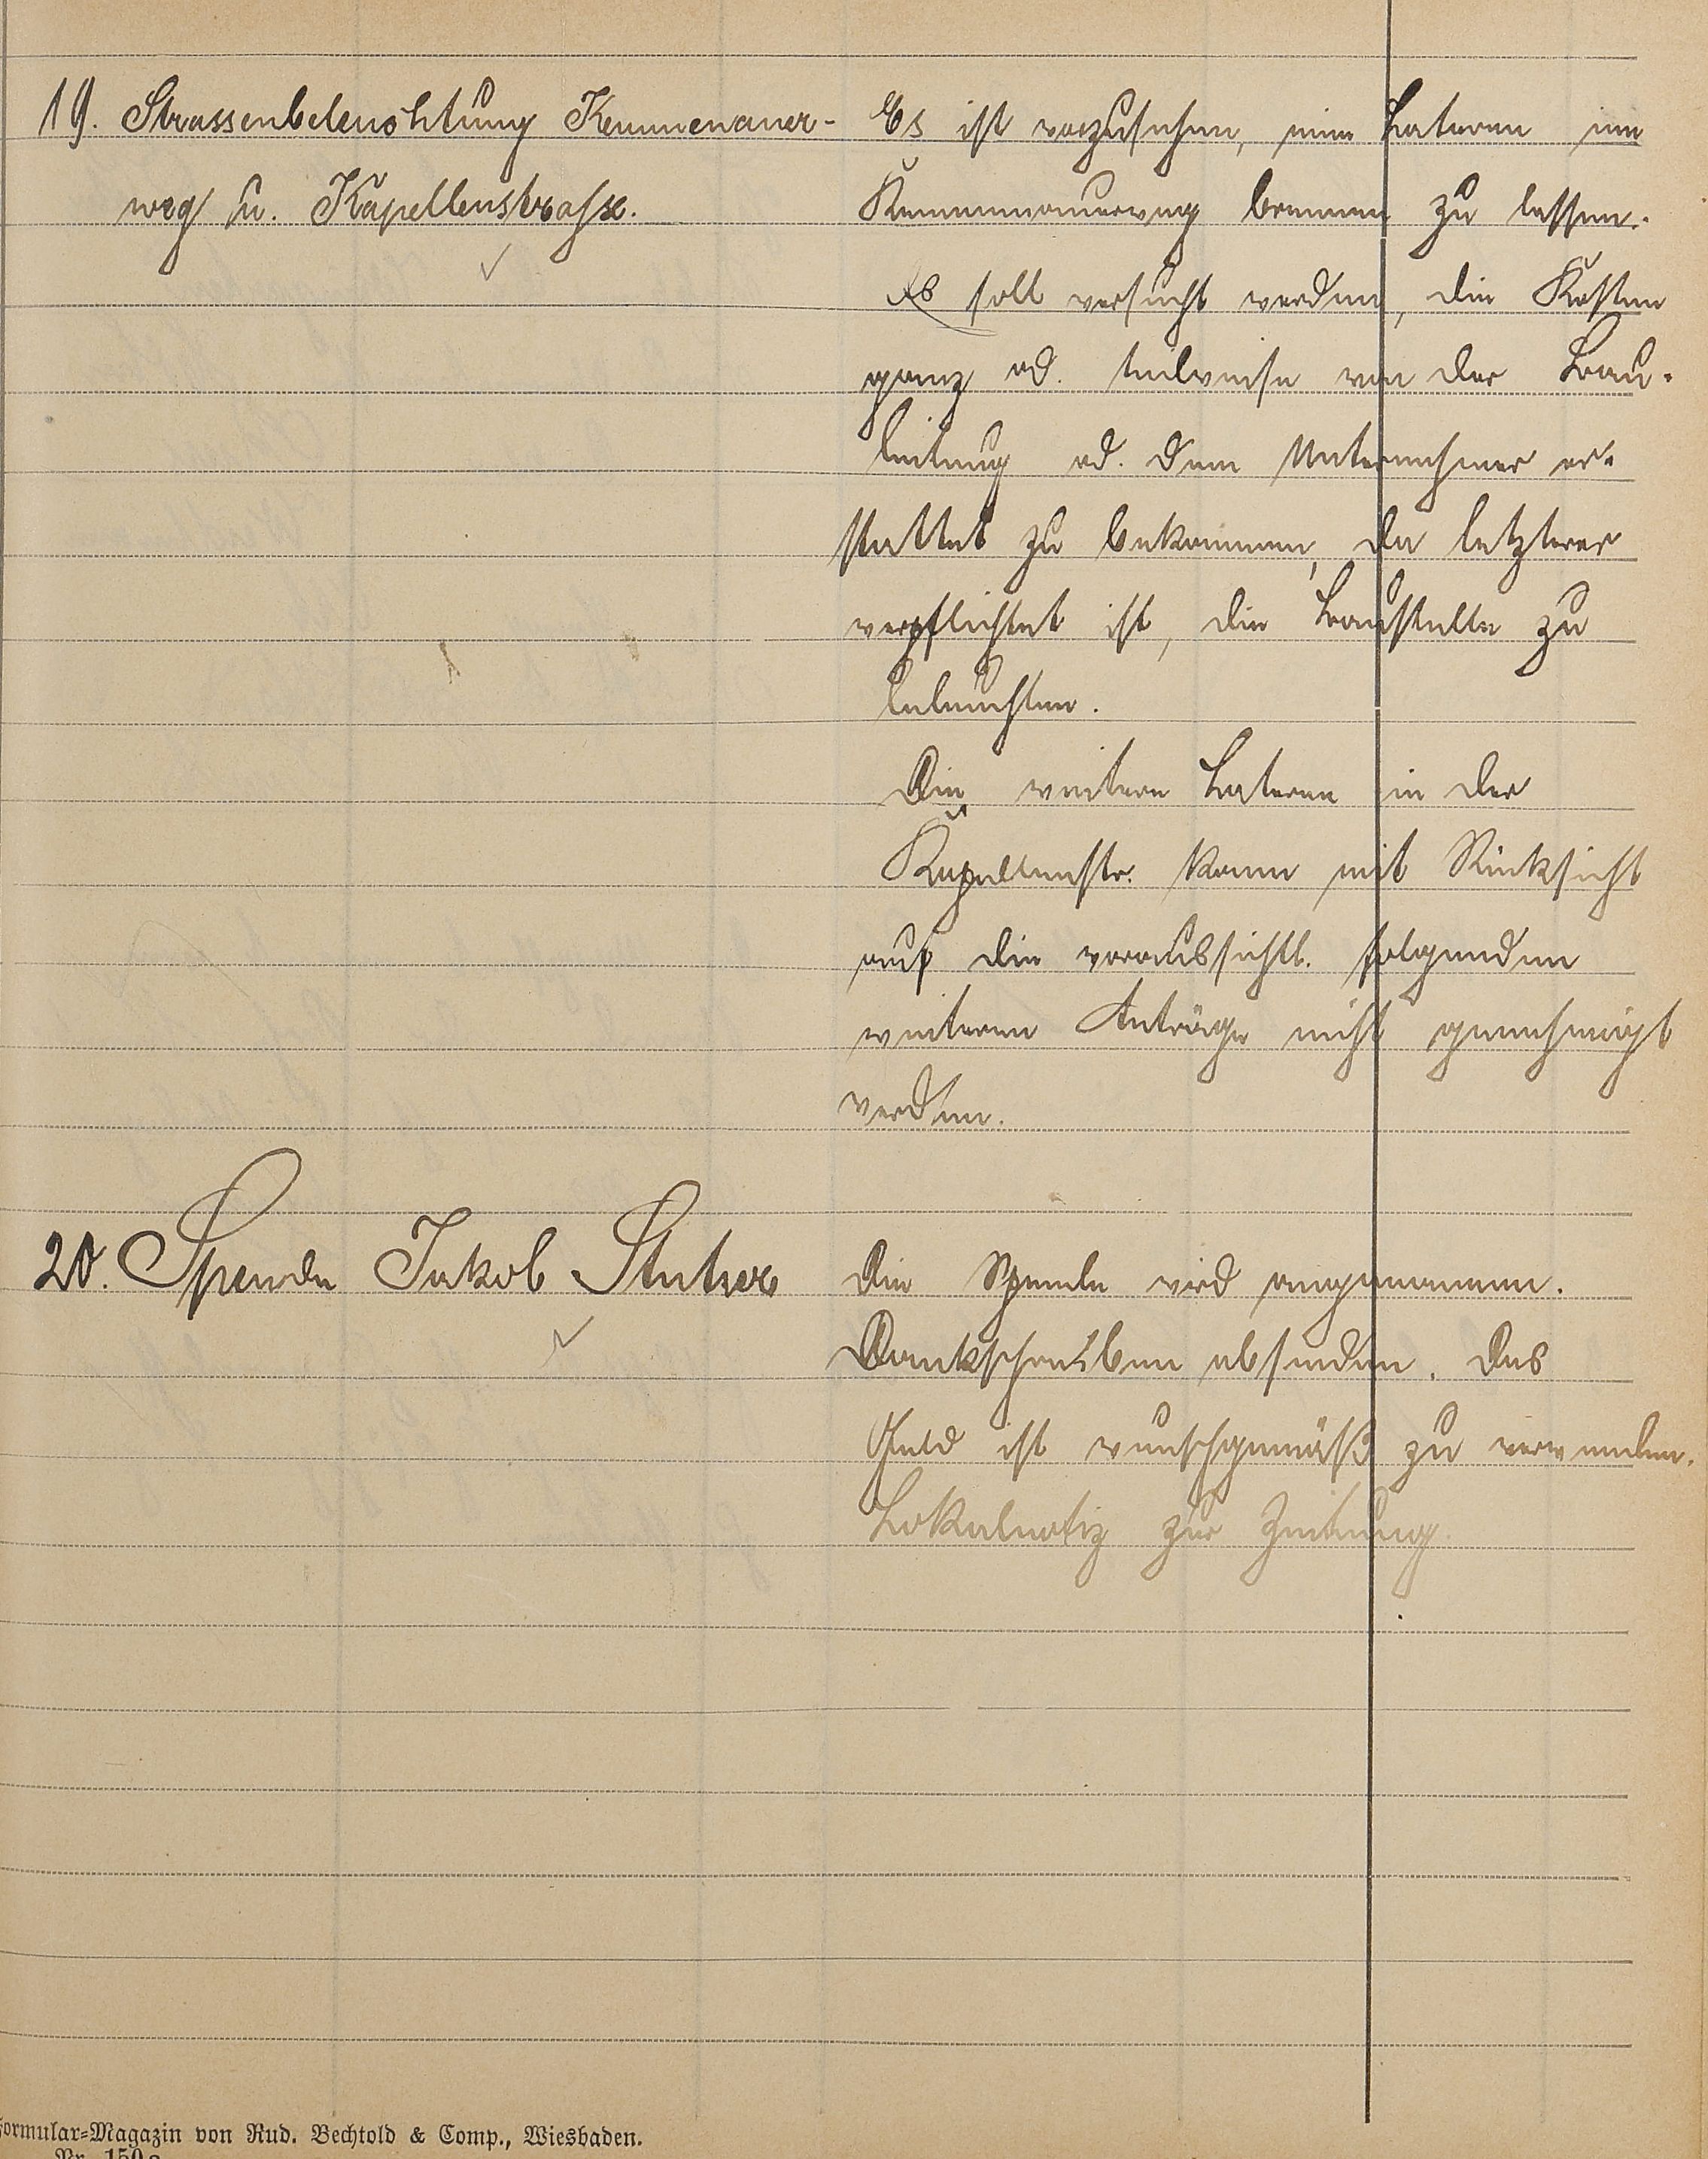 19. Strassenbeleuchtung Kemmenauer-
weg u. Kapellenstrasse.
Es ist vorzusehen, eine Laterne im
Kemmenauerweg brennen zu lassen.
Es soll versucht werden, die Kosten
ganz od. teilweise von der Bau-
leitung od. dem Unternehmer er-
stattet zu bekommen, da letzterer
verpflichtet ist, die Baustelle zu
beleuchten.
Die weitere Laterne in der
Kapellenstr. kann mit Rücksicht
auf die voraussichtl. folgenden
weiteren Anträge nicht genehmigt
werden.
20. Spende Jakob Stutzer
Die Spende wird angenommen.
Dankschreiben absenden. Das
Geld ist wunschgemäß zu verwenden.
Lokalnotiz zur Zeitung.
Formular-Magazin von Rud. Bechtold & Comp., Wiesbaden.